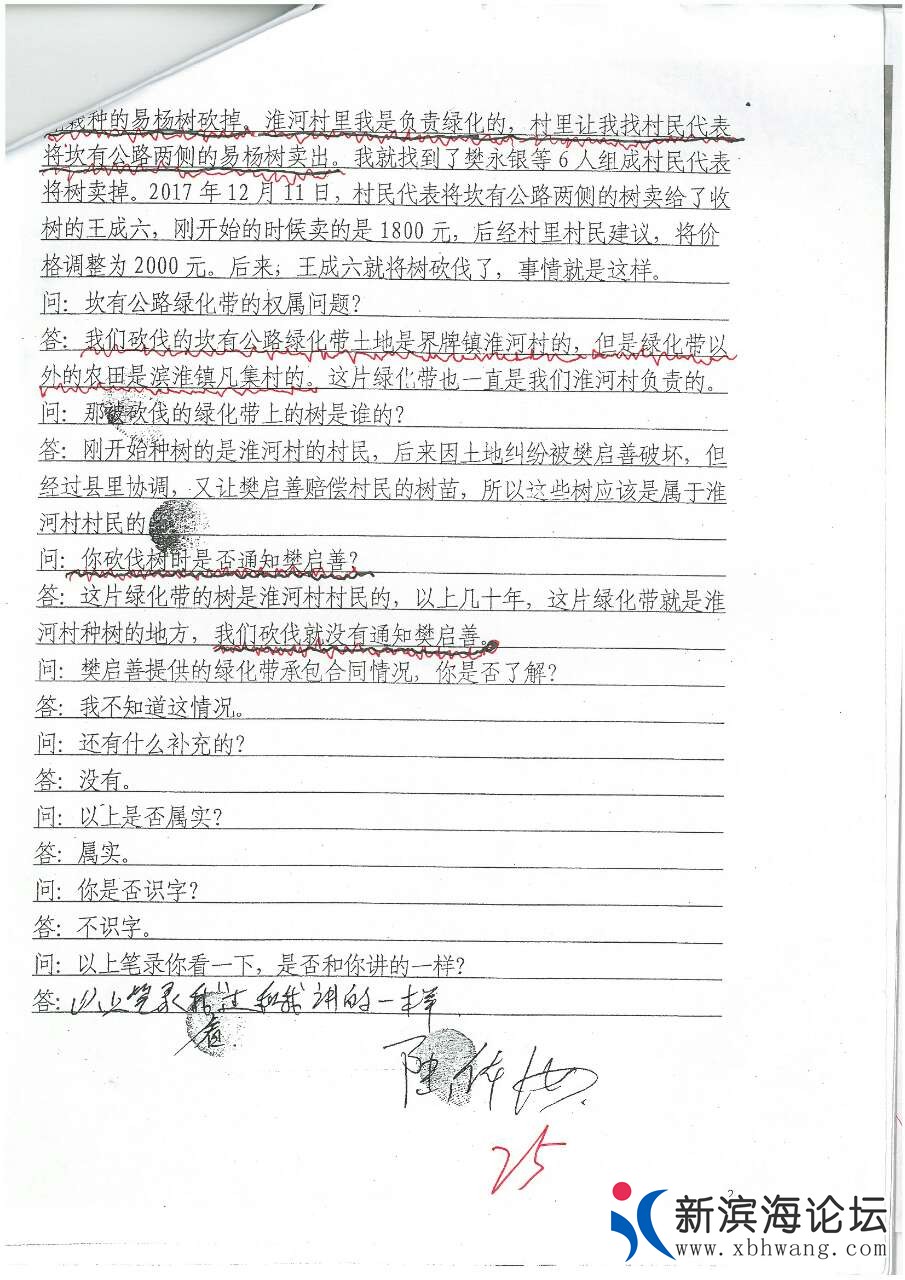 栽种的易杨树砍掉。淮河村里我是负责绿化的，村里让我找村民代表
将坎有公路两侧的易杨树卖出。我就找到了樊永银等6人组成村民代表
将树卖掉。2017年12月11日，村民代表将坎有公路两侧的树卖给了收
树的王成六，刚开始的时候卖的是1800元，后经村里村民建议，将价
格调整为2000元。后来；王成六就将树砍伐了，事情就是这样。
问：坎有公路绿化带的权属问题？
答：我们砍伐的坎有公路绿化带土地是界牌镇淮河村的，但是绿化带以
外的农田是滨淮镇凡集村的。这片绿化带也一直是我们淮河村负责的。
问：那被砍伐的绿化带上的树是谁的？
答：刚开始种树的是淮河村的村民，后来因土地纠纷被樊启善破坏，但
经过县里协调，又让樊启善赔偿村民的树苗，所以这些树应该是属于淮
河村村民的
问：你砍伐树时是否通知樊启善？
答：这片绿化带的树是淮河村村民的，以上几十年，这片绿化带就是淮
河村种树的地方，我们砍伐就没有通知樊启善。
问：樊启善提供的绿化带承包合同情况，你是否了解？
答：我不知道这情况。
问：还有什么补充的？
答：没有。
问：以上是否属实？
答：属实。
问：你是否识字？
答：不识字。
问：以上笔录你看一下，是否和你讲的一样？
答：以上笔录我看过和我讲的一样
25
2
新滨海论坛
www.xbhwang.com